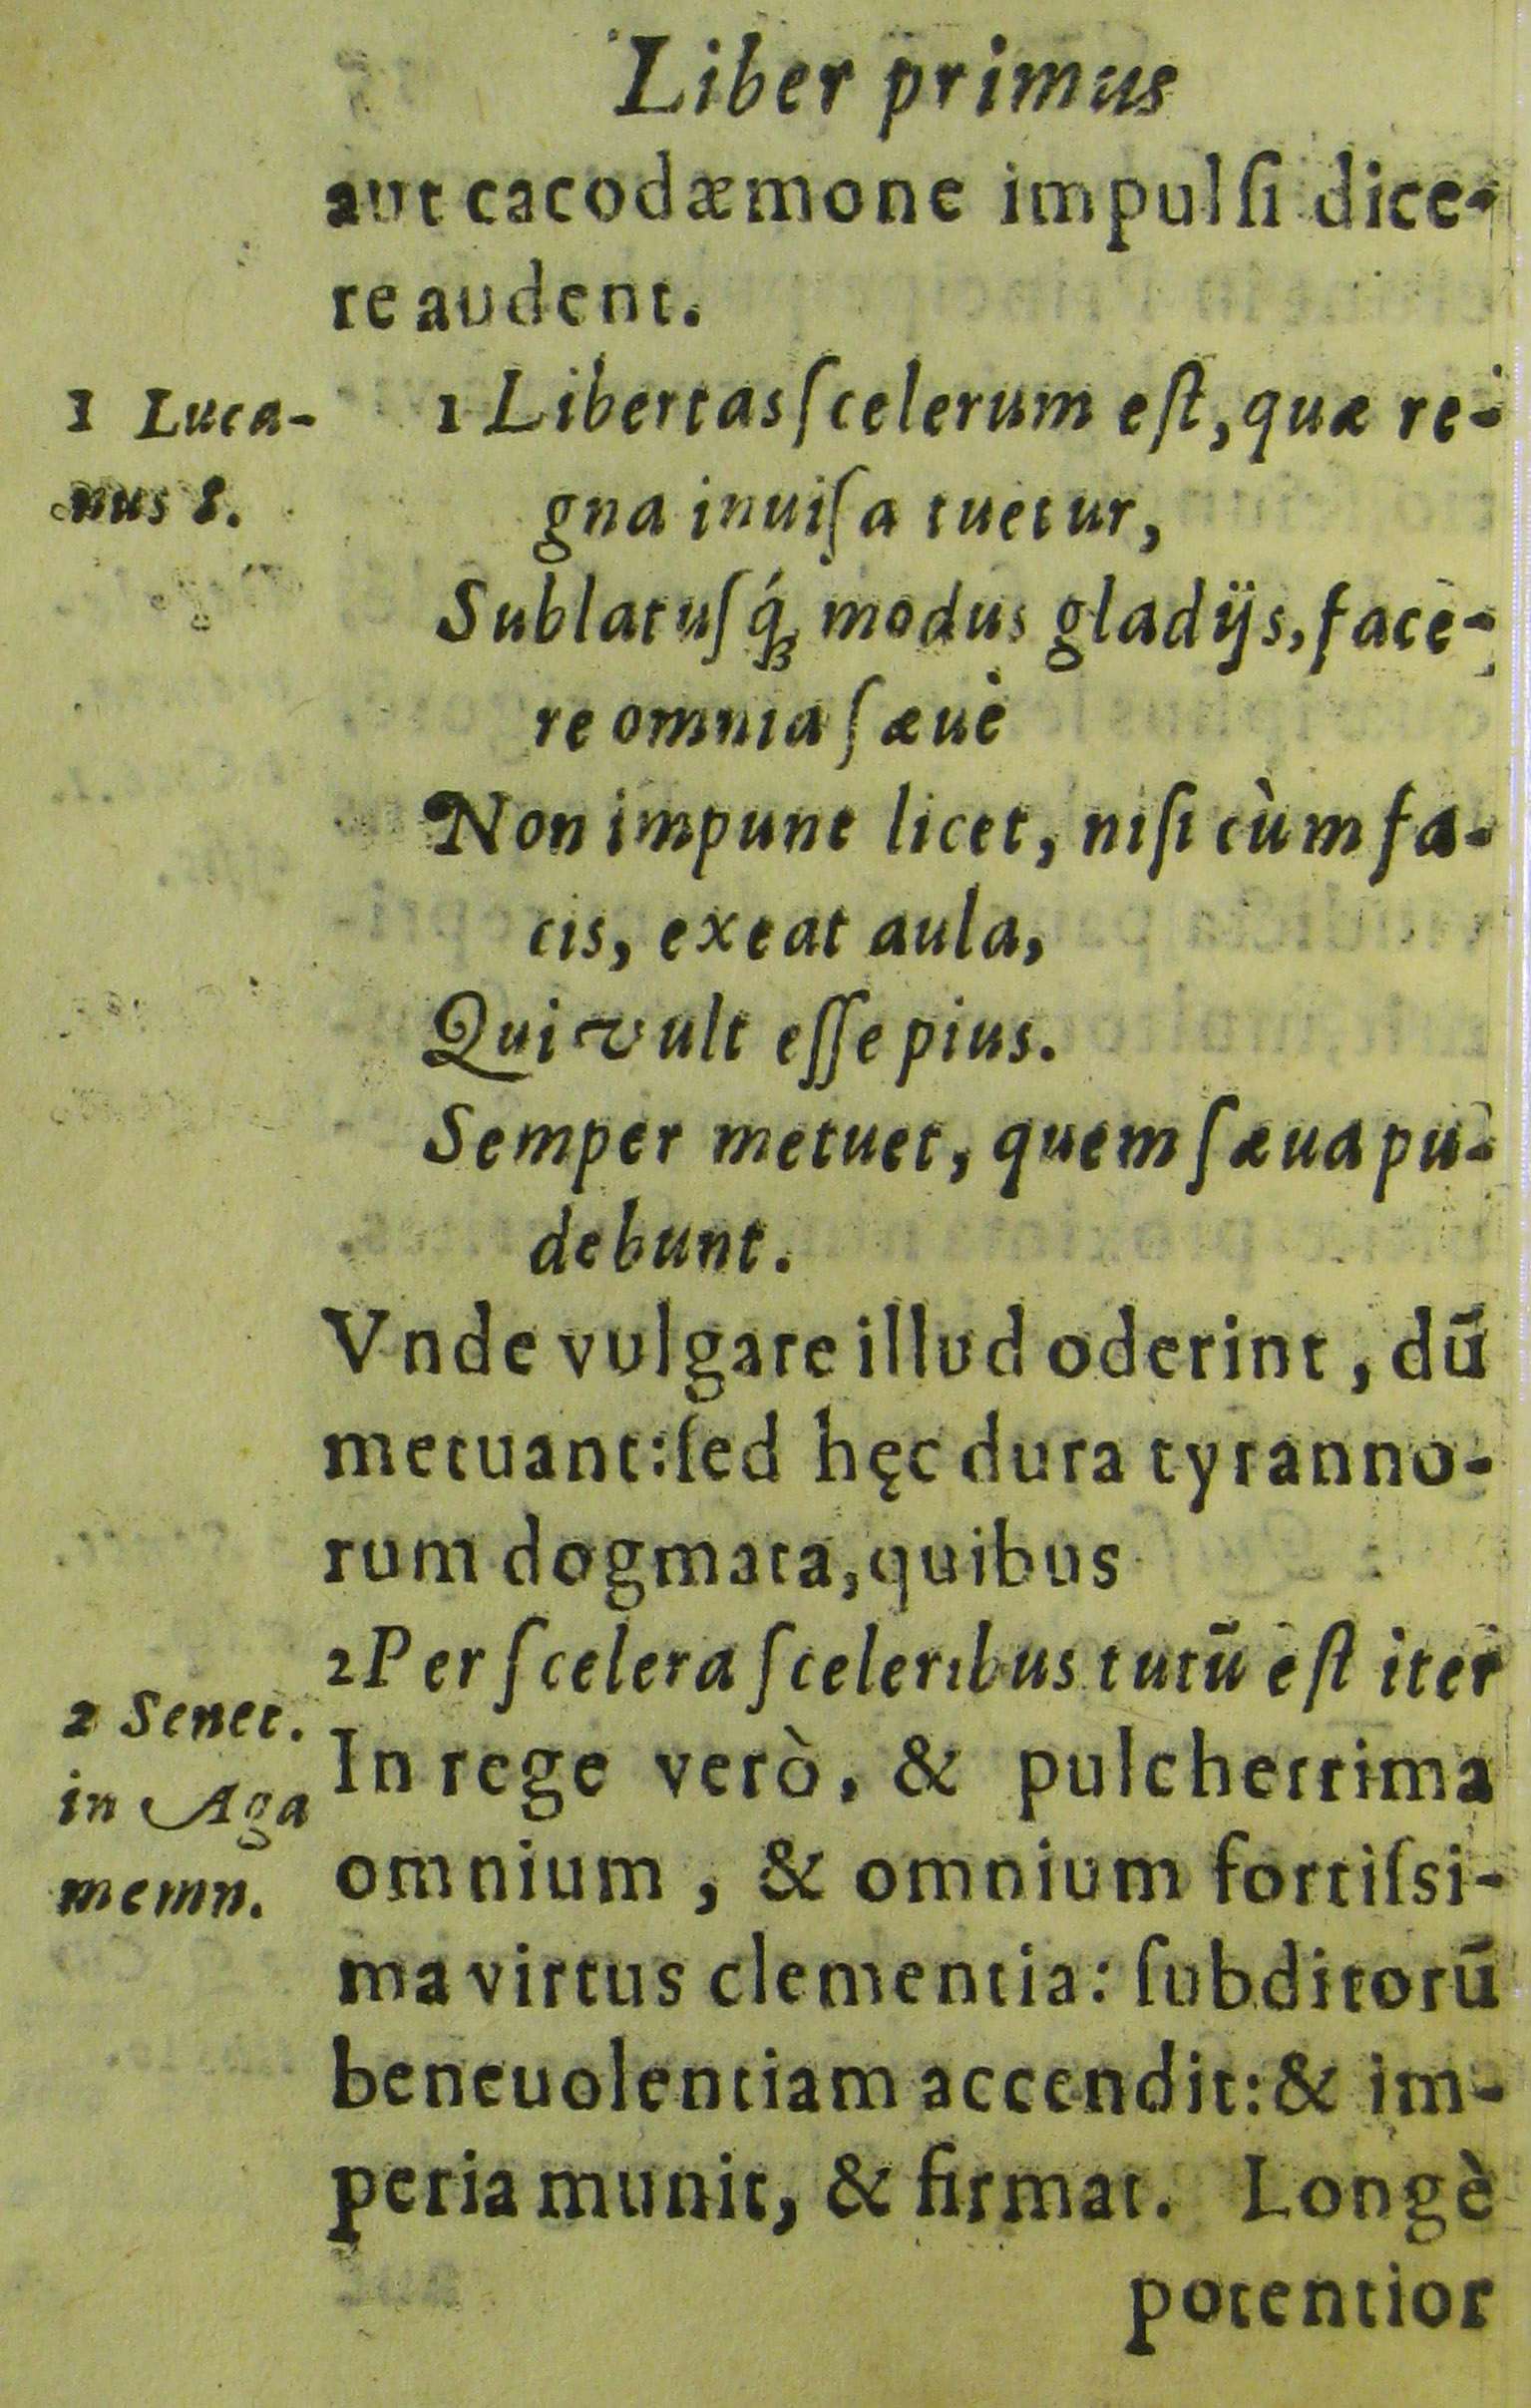 Liber primus
aut cacodæmone impulſi dice-
re audent.
1 Luca-
nus 8.
1 Libertas ſcelerum eſt, quæ re-
gna inuiſa tuetur,
Sublatuſq́ꝫ modus gladijs, face-
re omnia ſæuè
Non impune licet, niſi cùm fa-
cis, exeat aula,
Qui vult eſſe pius.
Semper metuet, quem ſæua pu-
debunt.
Vnde vulgare illud oderint, dū
metuant: ſed hęc dura tyranno-
rum dogmata, quibus
2 Per ſcelera ſceleribus tutū eſt iter
2 Senec.
in Aga
memn.
In rege verò, & pulcherrima
omnium, & omnium fortiſsi-
ma virtus clementia: ſubditorū
beneuolentiam accendit: & im-
peria munit, & firmat. Longè
potentior